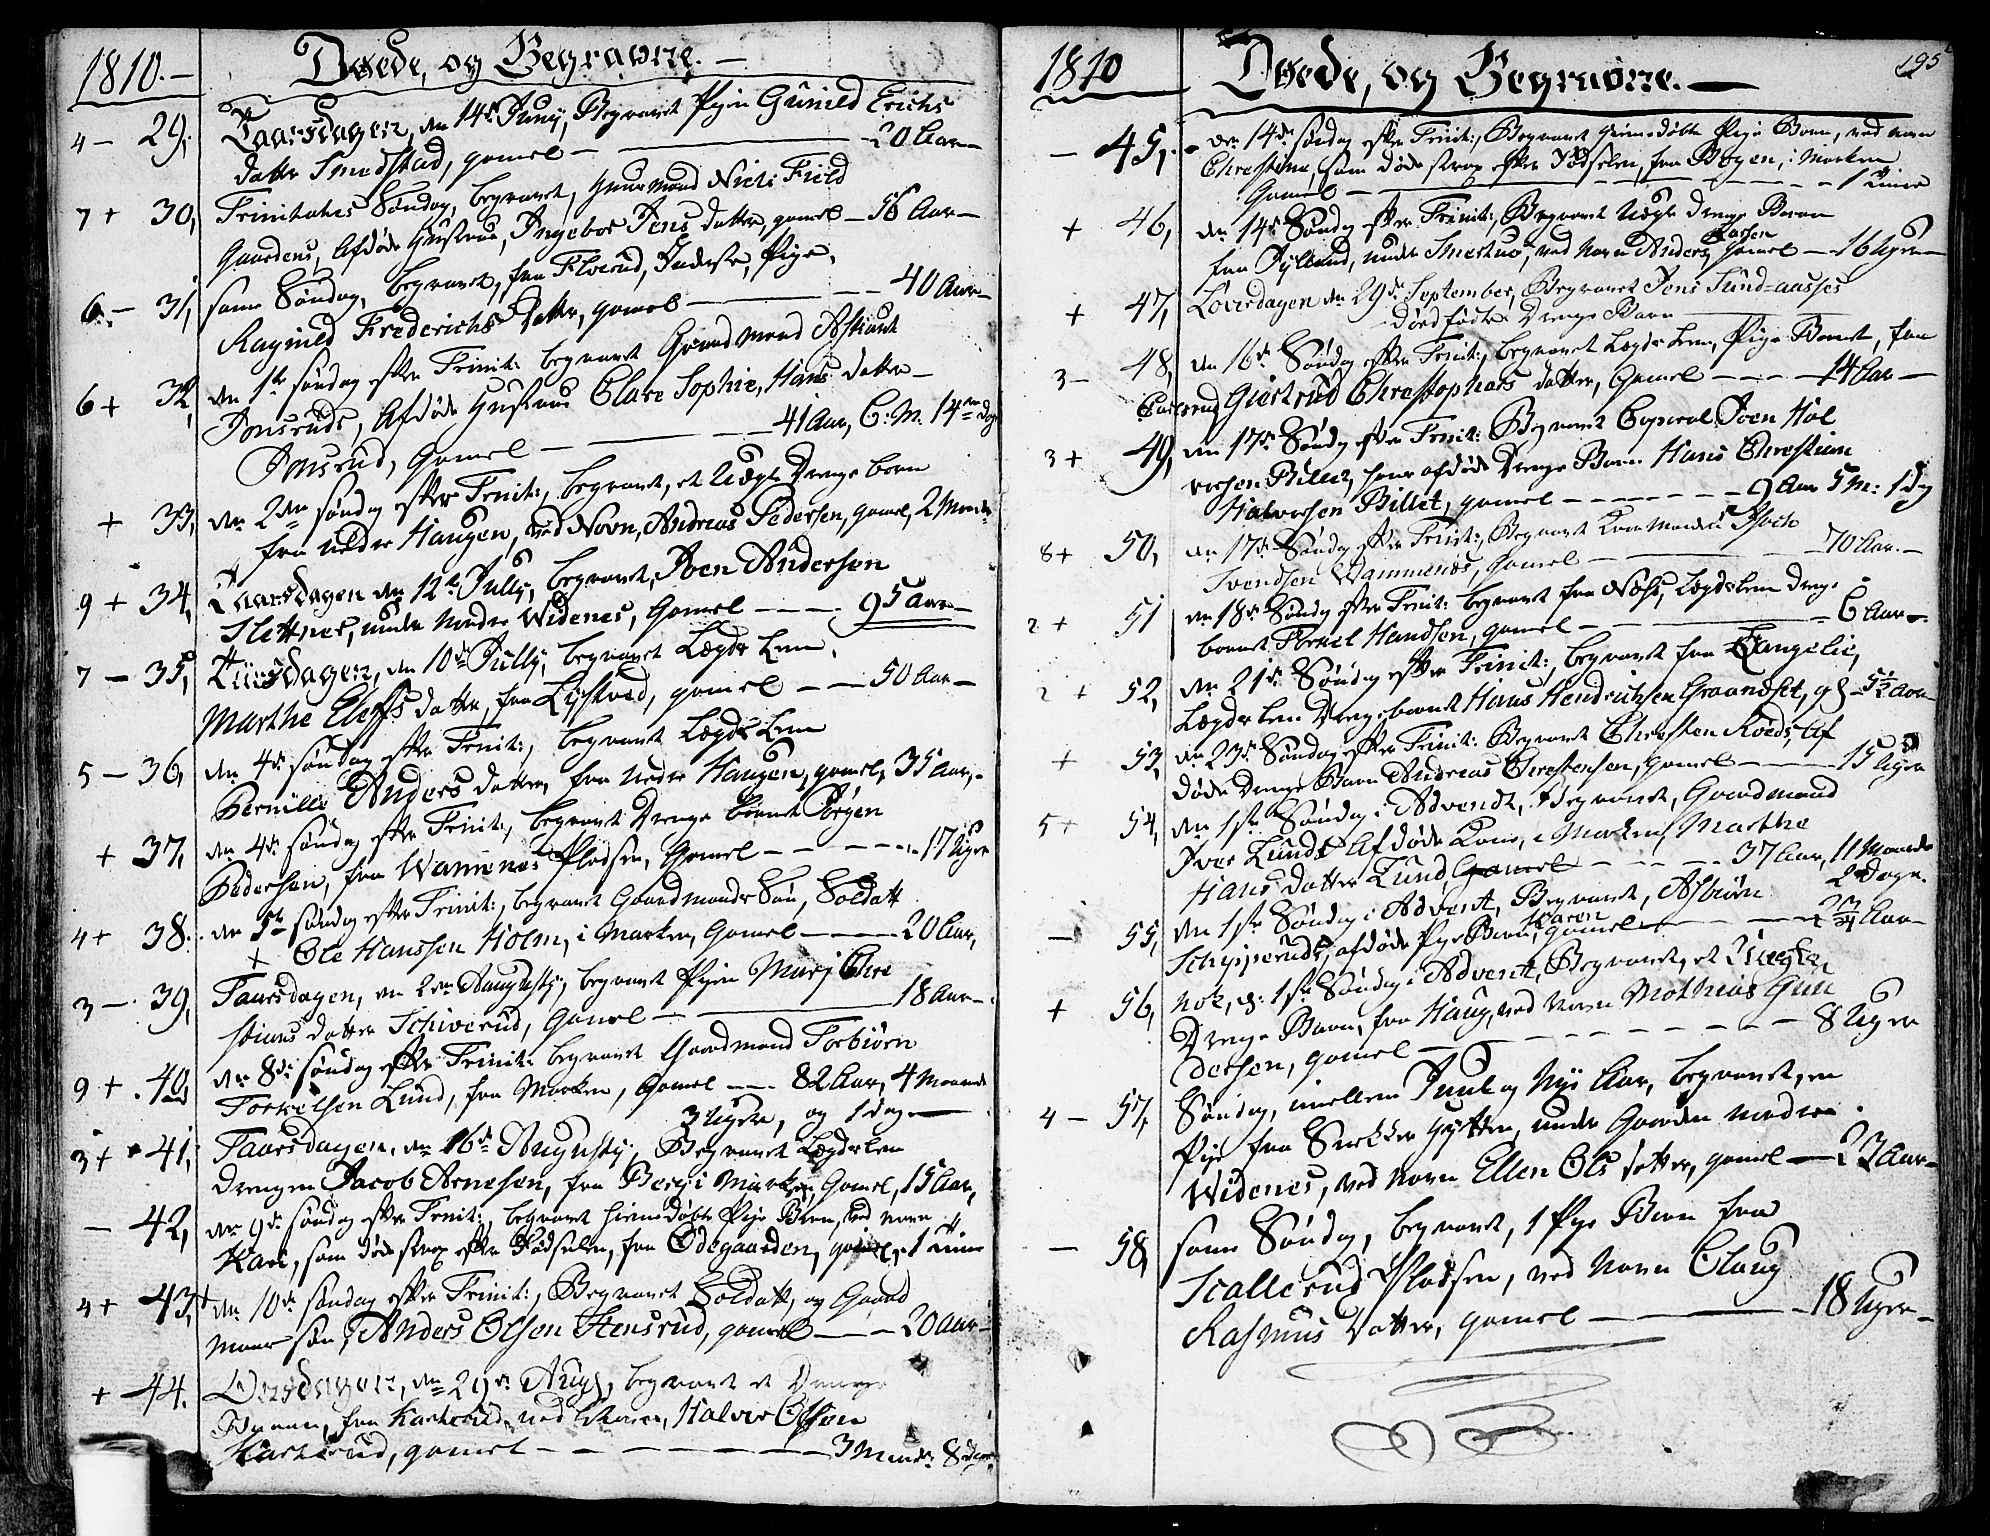 1810.—
Døde, og Begravne.—
4 — 29, Taarsdagen, den 14de Juny, Begravet Pigen Gunild Erichs
datter Smedstad, gamel — 20 Aar—
7 + 30, Trinitatis Søndag, begravet, Huusmand Niels Field
Gaardens, Afdøde Hustrue, Ingebor Jens datter, gamel — 56 Aar—
6 — 31, samme Søndag, begravet, fra Floerud, Inderste, Pige,
Ragnild Frederichs Datter, gamel — 40 Aar—
6 + 32, den 1ste søndag efter Trinit: begravet Gaardmand
Jonsruds, Afdøde Hustrue Clare Sophie, Hans datter—
Jonsrud, Gamel — 41 Aar, C: M. 14ten dage
+ 33, den 2den søndag efter Trinit:, begravet, et Uægte Drenge barn
fra nedre Haugen, ved Navn, Andreas Pedersen, gamel, 2 Maaneder
9 + 34, Taarsdagen den 12te Jully, begravet, Iven Andersen
Slettnes, under nedre Widenes, Gamel — 95 Aar—
7 — 35, Tiirsdagen, den 10de Jully, begravet Lægds Lem
Marthe Eleffs datter, fra Løfstad, gamel — 50 Aar—
5 — 36, den 4de søndag efter Trinit:, begravet Lægds Lem
Pernille Anders datter, fra nedre Haugen, gamel, 35 Aar,—
+ 37, den 4de søndag efter Trinit:, begravet Drenge barnet Jørgen
Pedersen, fra Wammenes Pladsen, Gamel — 17 Uger
4 + 38. den 5te søndag efter Trinit:, begravet Gaardmands Søn, Soldatt
+ Ole Hanssen Holm, i Marken, Gamel — 20 Aar,
3 — 39, Taarsdagen, den 2den Augusty, begravet Pigen Marj Chre
stians datter Schiverud, Gamel — 18 Aar—
9 + 40, den 8de søndag efter Trinit: begravet Gaardmand Torbiørn
Torkelsen Lund, fra Marken, Gamel — 82 Aar, 4 Maaneder
3 Uger, og 1 dag—
3 + 41, Taarsdagen, den 16de Augusty, Begravet Lægdslem
drengen Jacob Arnesen, fra Berg i Marken, Gamel, 15 Aar,
— 42, den 9de søndag efter Trinit:, begravet hiemedøbte Pige Barn, ved navn
Kari, som døde strax efter Fødselen, fra Ødegaarden, gamel, 1 Time
4 + 43, den 10de søndag efter Trinit:, Begravet Soldatt, og Gaard
mans søn, Anders Olsen Stensrud, gamel — 20 Aar—
+ 44. Onsdagen, den 29de Aug:, begravet et Drenge
Barn, fra Karterud, ved Navn, Halvor Olsen
Karterud, gamel — 3 Maaneder 8 dage
1810
Døde, og Begravne.—
195
— 45, den 14de søndag efter Trinit:, Begravet hiemedøbte Pige Barn, ved navn
Christine, som døde strax efter Fødselen, fra Bøgen, i Marken
Gamel — 1 Time
+ 46, den 14de Søndag efter Trinit:, Begravet Uægte Drenge Barn
fra Jylland, under, ved Navn Anders Larsen Gamel — 16 Uger—
+ 47, Løverdagen den 29de September, Begravet Jens Sund-aasses
dødfødte Drenge Barn —
3 — 48, den 16de Søndag efter Trinit:, begravet Lægds Lem, Pige Barnet, fra
Carlsrud Giertrud Christophers datter, Gamel — 14 Aar—
3 + 49, den 17de Søndag efter Trinit: Begravet Coperal Iven Hal
vorsen Billet, hans afdøde Drenge Barn Hans Christian
Halvorsen Billet, gamel — 9 Aar 5 M: 1 dag
8 + 50, den 17de Søndag efter Trinit:, Begravet
Svendsen Wammenæs, Gamel — 70 Aar.—
2 + 51 den 18de Søndag efter Trinit: begravet fra Næss, Lægdslem drenge
barnet Torkel Handsen, gamel — 6 Aar—
2 + 52, den 21de Søndag efter Trinit:, begravet fra Tangelie,
Lægdslem Drengebarnet Hans Hendrichsen Graandset, g: — 5½ Aar—
+ 53, den 23de Søndag efter Trinit: Begravet Christen Roeds, Af
døde Drenge Barn Andreas Christensen, gamel — 15 Uger
5 + 54, den 1ste Søndag i Advendt, Begravet, Gaardmand
Iver Lunds Afdøde Kone, i Marken, Marthe
Hans datter Lund Gamel — 37 Aar, 11 Maaneder
2 dage.
— 55, den 1ste Søndag i Advent, Begravet, Asbiørn
Schipperuds, afdøde Pige Barn, Karen gamel — Aar—
+ 56, 1ste Søndag i Advent, Begravet, et Uægte
Drenge Barn, fra Haug, ved Navn Mathias Gun
dersen, gamel — 8 Uger
4 — 57, Søndag, imellem Juul og Nye Aar, begravet, en
Pige fra Snekker Hytten, under Gaarden nedre
Widenes, ved navn Ellen Ols datter, gamel — 23 Aar—
— 58, samme Søndag, begravet, 1 Pige Barn fra
Scallerud Pladsen, ved Navn Olaug
Rasmus datter, gamel — 18 Uger—